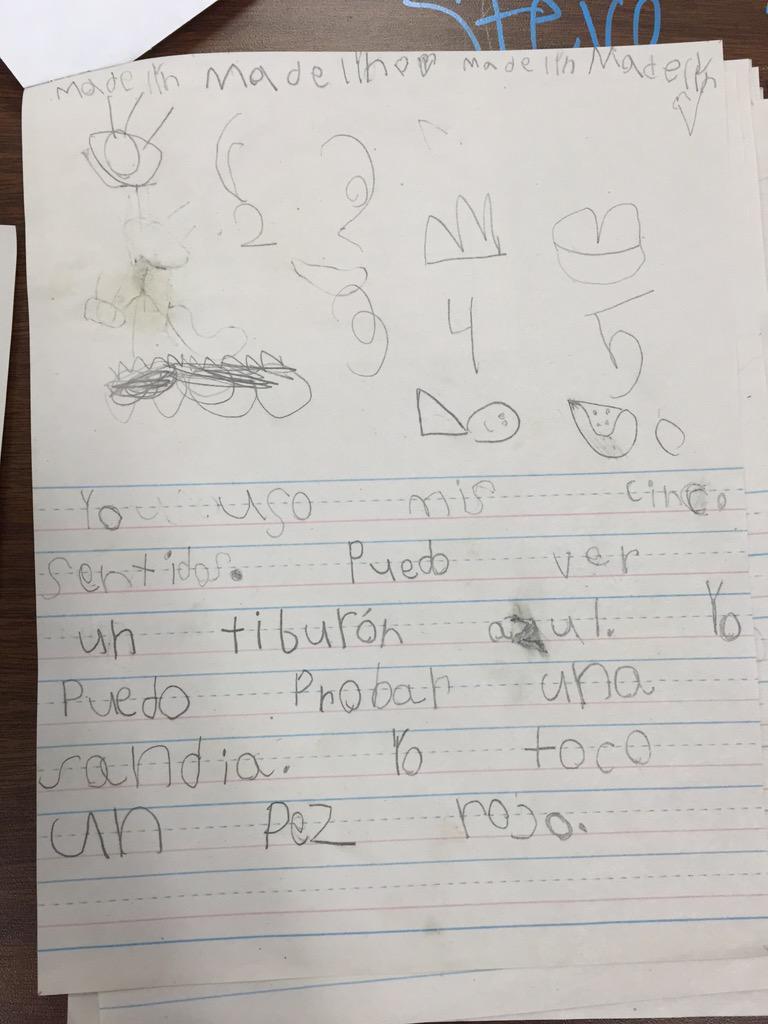 Stevo
madelin madelin madelin Madelin
2 2
3 4 5
Yo uso mis cinco
sentidos. Puedo ver
un tiburón azul. Yo
Puedo Probar una
sandia. Yo toco
un Pez rojo.